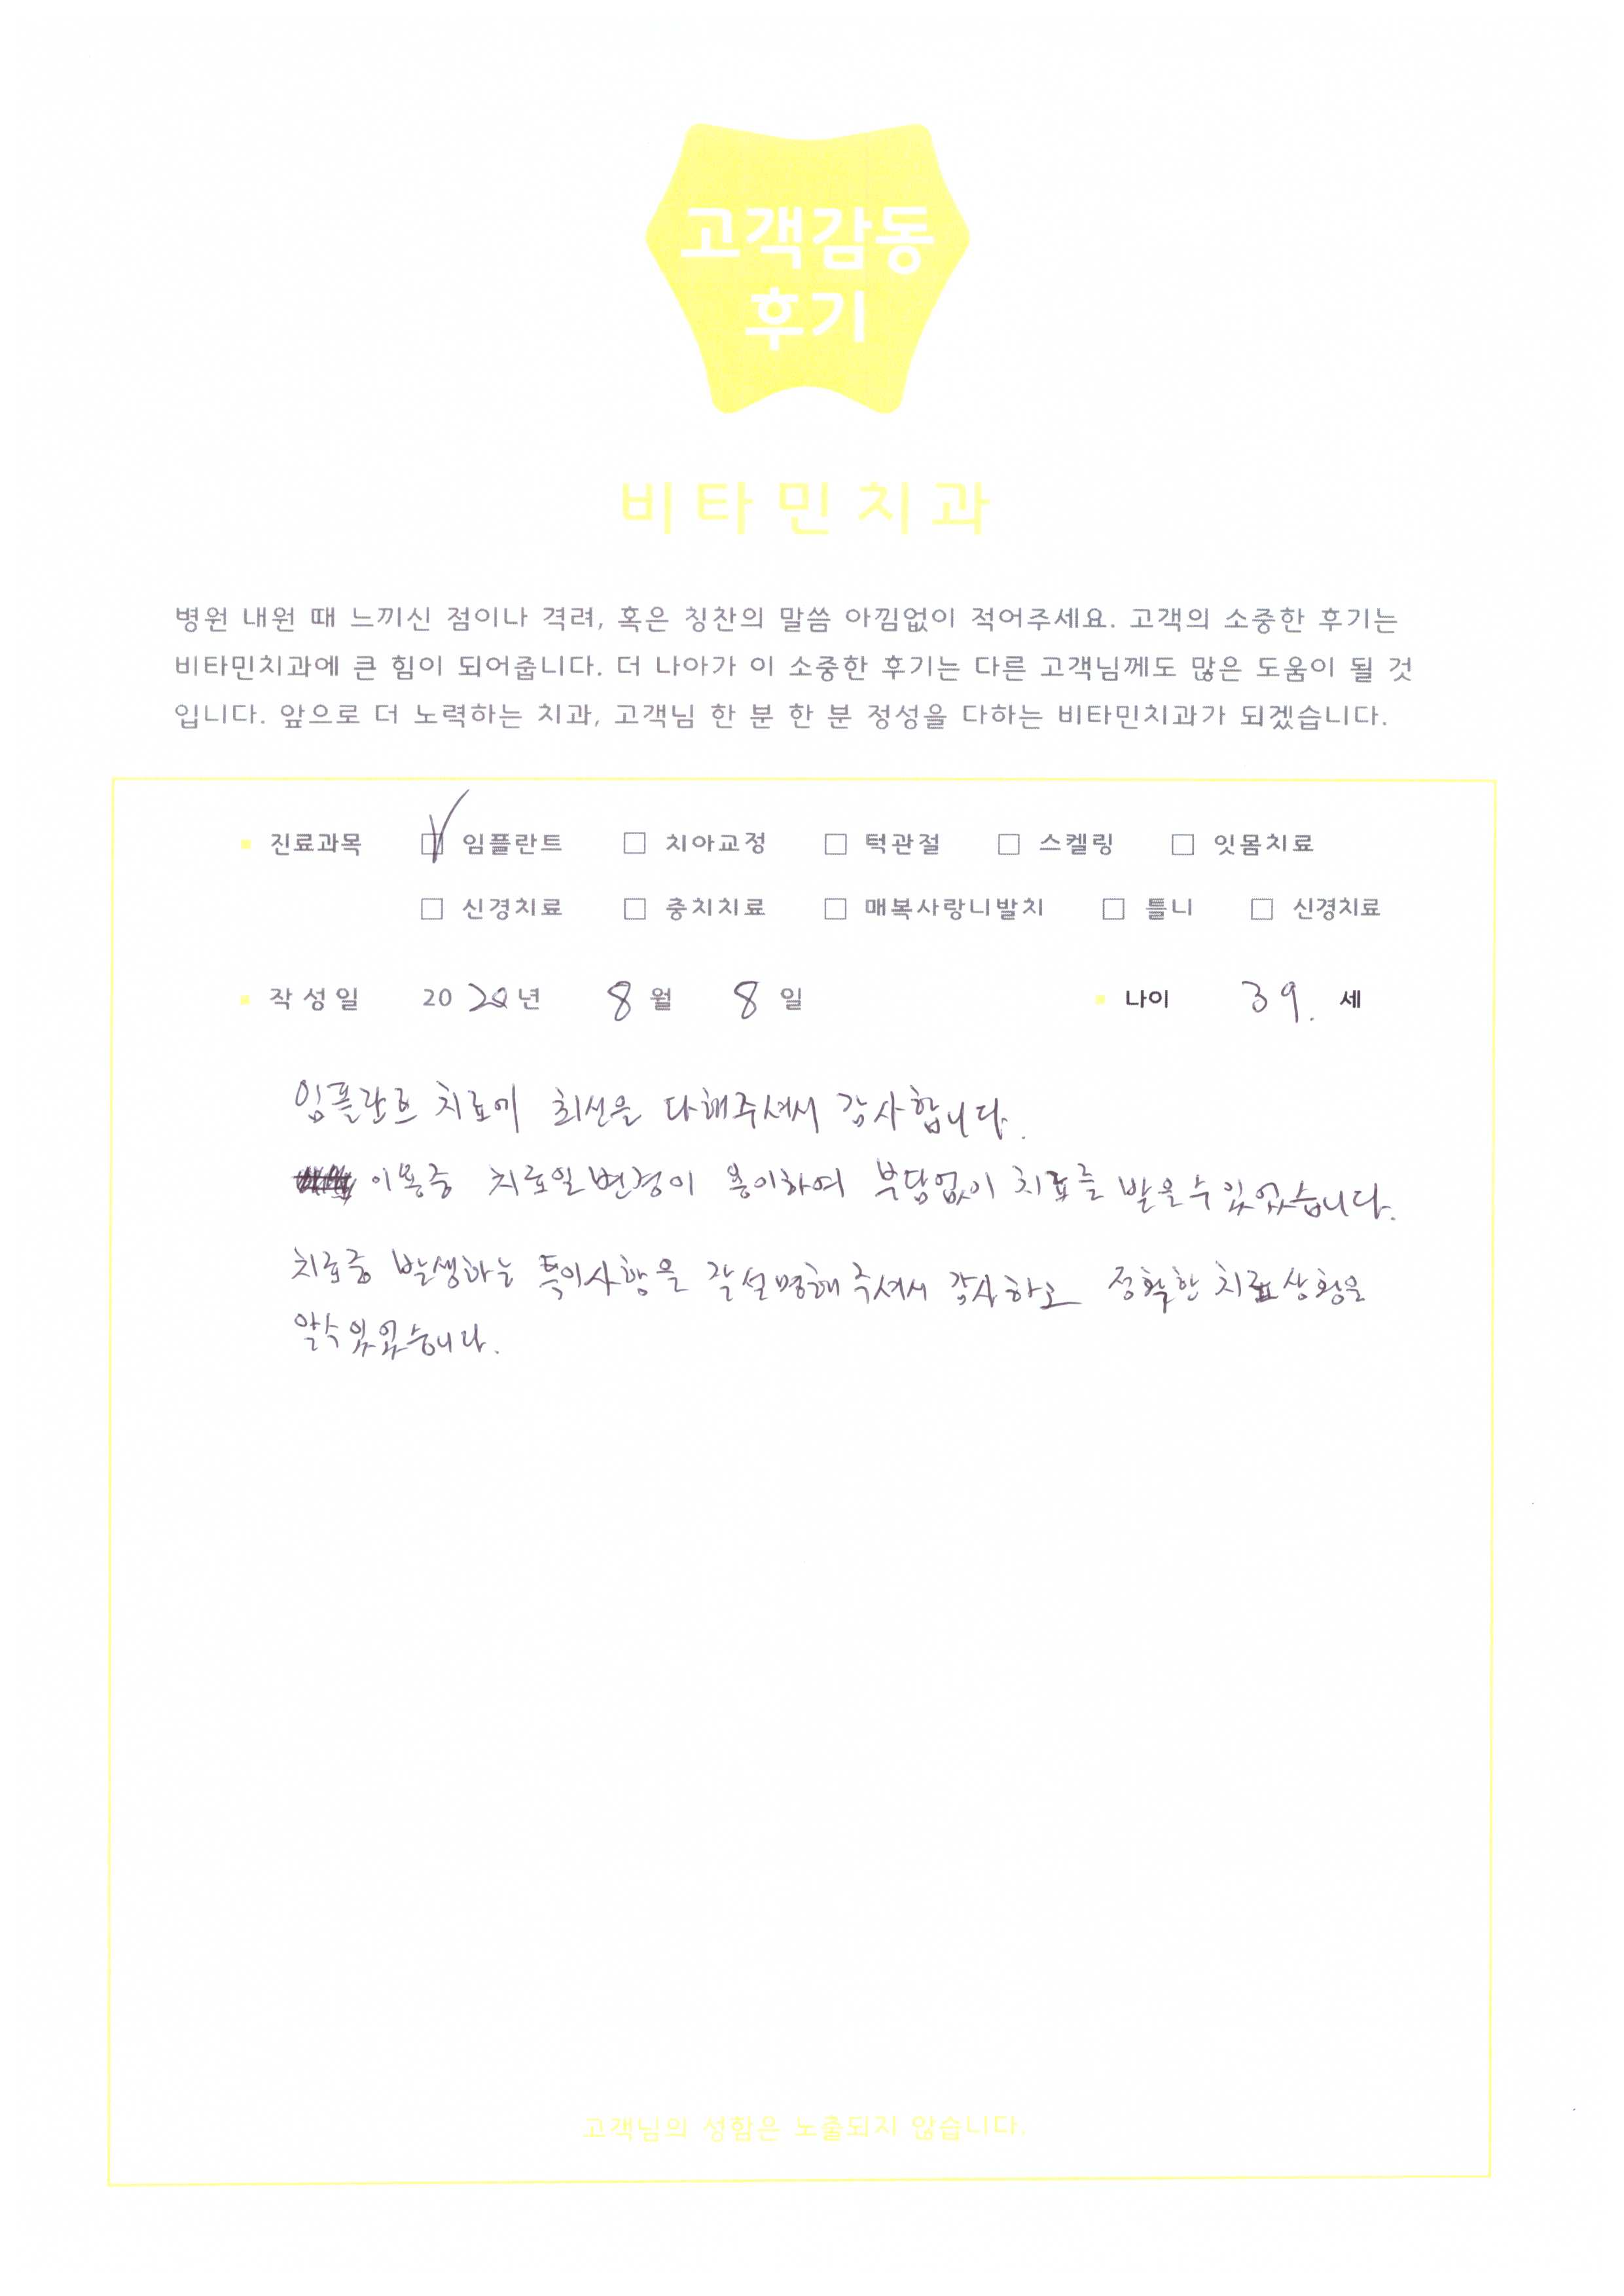 고객감동
후기
비타민치과
병원 내원 때 느끼신 점이나 격려, 혹은 칭찬의 말씀 아낌없이 적어주세요. 고객의 소중한 후기는
비타민치과에 큰 힘이 되어줍니다. 더 나아가 이 소중한 후기는 다른 고객님께도 많은 도움이 될 것
입니다. 앞으로 더 노력하는 치과, 고객님 한 분 한 분 정성을 다하는 비타민치과가 되겠습니다.
진료과목 임플란트 치아교정 턱관절 스켈링 잇몸치료
신경치료 충치치료 매복사랑니발치 틀니 신경치료
작성일 2020년 8월 8일 나이 39. 세
임플란트 치료에 최선을 다해주셔서 감사합니다.
이용중 치료일변경이 용이하여 부담없이 치료를 받을수 있었습니다.
치료중 발생하는 특이사항을 잘 설명해 주셔서 감사하고 정확한 치료상황을
알수 있었습니다.
고객님의 성함은 노출되지 않습니다.